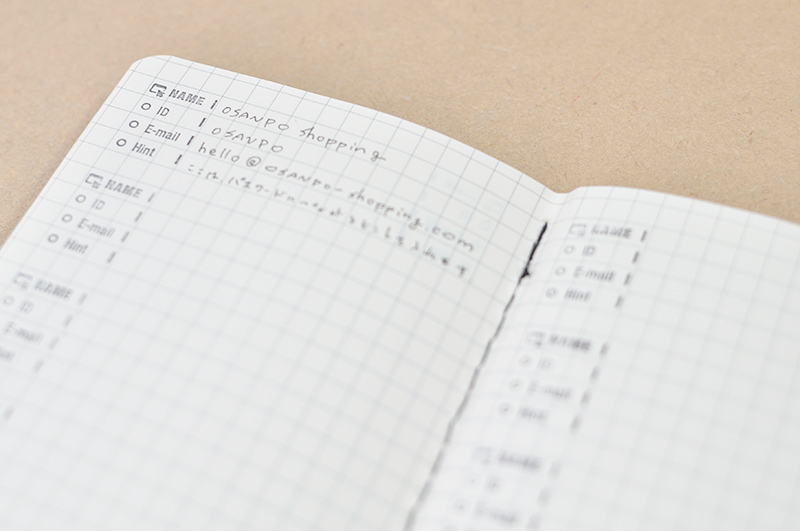 NAME | OSANPO shopping
ID | OSANPO
E-mail | hello@osanpo-shopping.com
Hint | ここは、パスワードのヒントをメモします
NAME |
ID |
E-mail |
Hint |
NAME |
ID |
E-mail |
NAME |
ID |
E-mail |
Hint |
NAME |
ID |
E-mail |
Hint |
NAME |
ID |
E-mail |